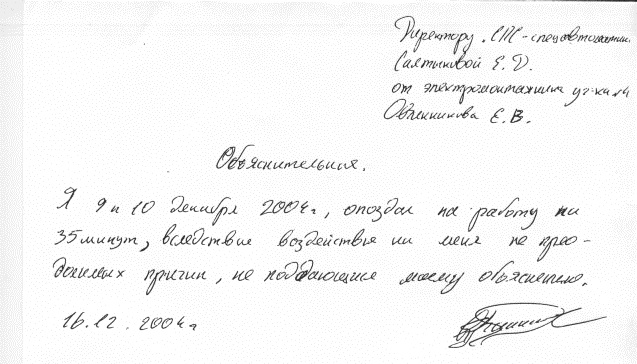 Директору "СПС-спецавтоматики"
Салтыковой Е. Д.
от электромонтажника уч-ка №4
Овчинникова Е. В.
Объяснительная.
Я 9 и 10 декабря 2004г, опоздал на работу на
35 минут, вследствие воздействия на меня не прео-
долимых причин, не поддающихся моему объяснению.
16.12.2004г